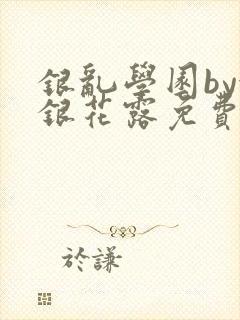 銀亂學園by
銀花露免費
於謙